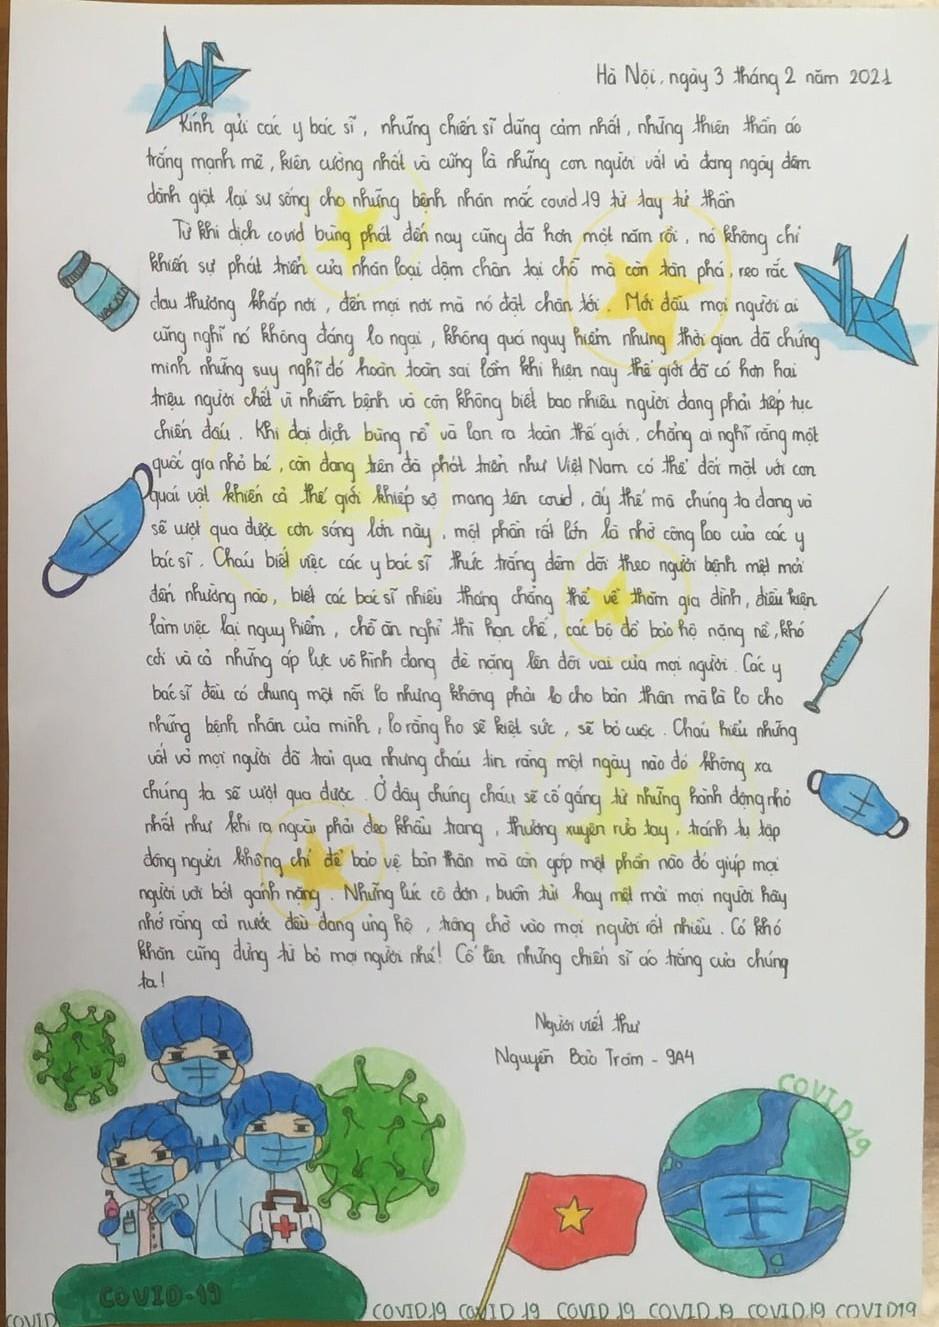 Hà Nội, ngày 3 tháng 2 năm 2021
Kính gửi các y bác sĩ, những chiến sĩ dũng cảm nhất, những thiên thần áo
trắng mạnh mẽ, kiên cường nhất và cũng là những con người vất vả đang ngày đêm
dành giật lại sự sống cho những bệnh nhân mắc covid 19 từ tay tử thần
Từ khi dịch covid bùng phát đến nay cũng đã hơn một năm rồi, nó không chỉ
khiến sự phát triển của nhân loại dậm chân tại chỗ mà còn tàn phá, reo rắc
đau thương khắp nơi, đến mọi nơi mà nó đặt chân tới. Mới đầu mọi người ai
cũng nghĩ nó không đáng lo ngại, không quá nguy hiểm nhưng thời gian đã chứng
minh những suy nghĩ đó hoàn toàn sai lầm khi hiện nay thế giới đã có hơn hai
triệu người chết vì nhiễm bệnh và còn không biết bao nhiêu người đang phải tiếp tục
chiến đấu. Khi đại dịch bùng nổ và lan ra toàn thế giới, chẳng ai nghĩ rằng một
quốc gia nhỏ bé, còn đang trên đà phát triển như Việt Nam có thể đối mặt với con
quái vật khiến cả thế giới khiếp sợ mang tên covid, ấy thế mà chúng ta đang và
sẽ vượt qua được cơn sóng lớn này, một phần rất lớn là nhờ công lao của các y
bác sĩ. Cháu biết việc các y bác sĩ thức trắng đêm dõi theo người bệnh mệt mỏi
đến nhường nào, biết các bác sĩ nhiều tháng chẳng thể về thăm gia đình, điều kiện
làm việc lại nguy hiểm, chỗ ăn nghỉ thì hạn chế, các bộ đồ bảo hộ nặng nề, khó
cởi và cả những áp lực vô hình đang đè nặng lên đôi vai của mọi người. Các y
bác sĩ đều có chung một nỗi lo nhưng không phải lo cho bản thân mà là lo cho
những bệnh nhân của mình, lo rằng họ sẽ kiệt sức, sẽ bỏ cuộc. Cháu hiểu những
vất vả mọi người đã trải qua nhưng cháu tin rằng một ngày nào đó không xa
chúng ta sẽ vượt qua được. Ở đây chúng cháu sẽ cố gắng từ những hành động nhỏ
nhất như khi ra ngoài phải đeo khẩu trang, thường xuyên rửa tay, tránh tụ tập
đông người không chỉ để bảo vệ bản thân mà còn góp một phần nào đó giúp mọi
người vơi bớt gánh nặng. Những lúc cô đơn, buồn tủi hay mệt mỏi mọi người hãy
nhớ rằng cả nước đều đang ủng hộ, trông chờ vào mọi người rất nhiều. Có khó
khăn cũng đừng từ bỏ mọi người nhé! Cố lên những chiến sĩ áo trắng của chúng
ta!
Người viết thư
Nguyễn Bảo Trâm - 9A4
VACXIN
COVID 19
COVID-19
COVID COVID 19 COVID 19 COVID 19 COVID 19 COVID 19 COVID19